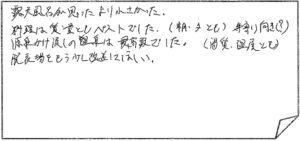 露天風呂が思ったより小さかった。
料理は質、量ともベストでした。(朝・夕とも) 年寄り向き(?)
源泉かけ流しの温泉は最高でした。(湯質、温度とも)
脱衣場をもう少し改造してほしい。